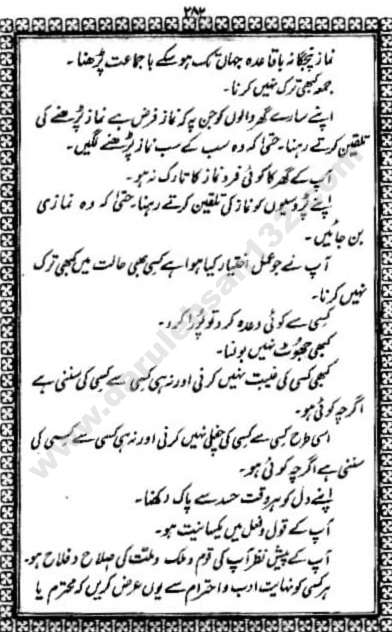 ۳۸۲
نماز پنجگانہ باقاعدہ جہاں تک ہو سکے باجماعت پڑھنا۔
جمعہ کبھی ترک نہیں کرنا۔
اپنے سارے گھر والوں کو جن پر کہ نماز فرض ہے نماز پڑھنے کی
تلقین کرتے رہنا۔ حتیٰ کہ وہ سب کے سب نماز پڑھنے لگیں۔
آپ کے گھر کا کوئی فرد نماز کا تارک نہ ہو۔
اپنے پڑوسیوں کو نماز کی تلقین کرتے رہنا۔ حتیٰ کہ وہ نمازی
بن جائیں۔
آپ نے جو عمل اختیار کیا ہوا ہے کسی بھی حالت میں کبھی ترک
نہیں کرنا۔
کسی سے کوئی وعدہ کرو تو پورا کرو۔
کبھی جھوٹ نہیں بولنا۔
کبھی کسی کی غیبت نہیں کرنی اور نہ ہی کسی سے کسی کی سننی ہے
اگرچہ کوئی ہو۔
اسی طرح کسی سے کسی کی چغلی نہیں کرنی اور نہ ہی کسی سے کسی کی
سننی ہے اگرچہ کوئی ہو۔
اپنے دل کو ہر وقت حسد سے پاک رکھنا۔
آپ کے قول و فعل میں یکسانیت ہو۔
آپ کے پیش نظر آپ کی قوم و ملک و ملت کی صلاح و فلاح ہو۔
ہر کسی کو نہایت ادب و احترام سے یوں عرض کریں کہ محترم یا
www.darulehsan132.com